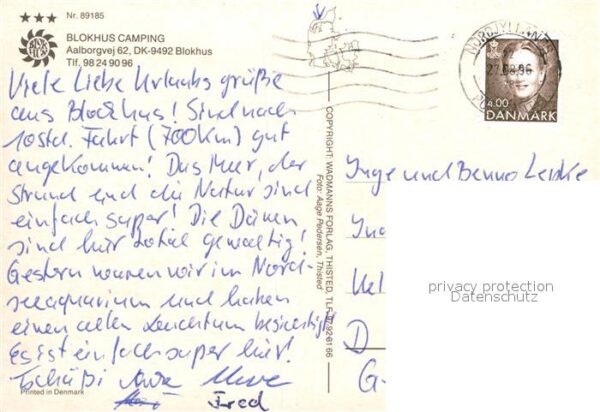 ★★★ Nr. 89185
BLOKHUS CAMPING
Aalborgvej 62, DK-9492 Blokhus
Tlf. 98 24 90 96
Viele Liebe Urlaubsgrüße
aus Blockhus! Sind nach
10std. Fahrt (700km) gut
angekommen! Das Meer, der
Strand und die Natur sind
einfach super! Die Dänen
sind hier total gewaltig!
Gestern waren wir im Nord-
seeaquarium und haben
einen alten Leuchtturm besichtigt
Es ist einfach super hier!
Tschüßi
Fred
Printed in Denmark
COPYRIGHT: WADMANNS FORLAG, THISTED, TLF. 97 92 61 66
Foto: Aage Pedersen, Thisted
NORDJYLLANDS
27.08.96
4.00
DANMARK
Inge und Benno
D
G-
privacy protection
Datenschutz